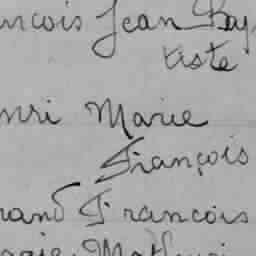 ncois Jean Bap
tiste
nri Marie
François
rand Francois